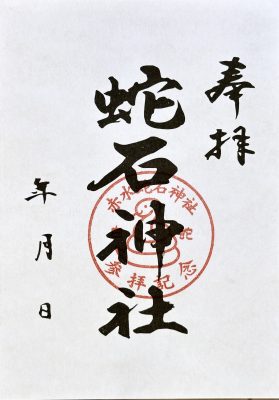 奉拝
蛇石神社
年月日
赤水蛇石神社
参拝記念